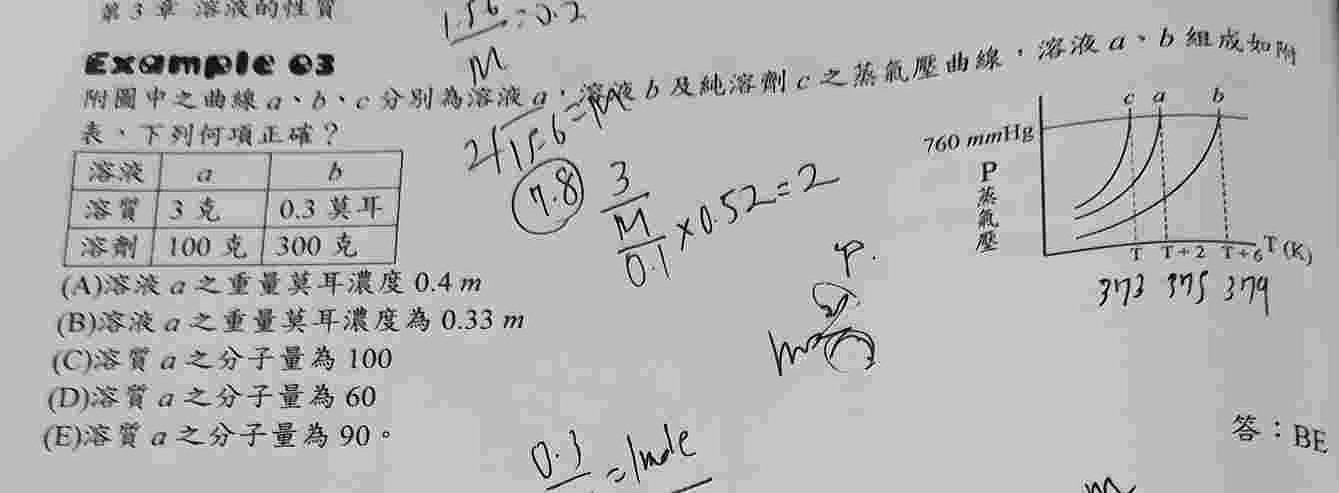 第 3 章 溶液的性質
1.56/M = 0.2
Example 03
附圖中之曲線 a、b、c 分別為溶液 a，溶液 b 及純溶劑 c 之蒸氣壓曲線，溶液 a、b 組成如附
表，下列何項正確？
溶液 a b
溶質 3 克 0.3 莫耳
溶劑 100 克 300 克
7.8
3/M/0.1 ×0.52=2
c a b
760 mmHg
P
蒸
氣
壓
T T+2 T+6 T (K)
373 375 379
(A)溶液 a 之重量莫耳濃度 0.4 m
(B)溶液 a 之重量莫耳濃度為 0.33 m
(C)溶質 a 之分子量為 100
(D)溶質 a 之分子量為 60
(E)溶質 a 之分子量為 90。
答：BE
0.3
=1mole
m